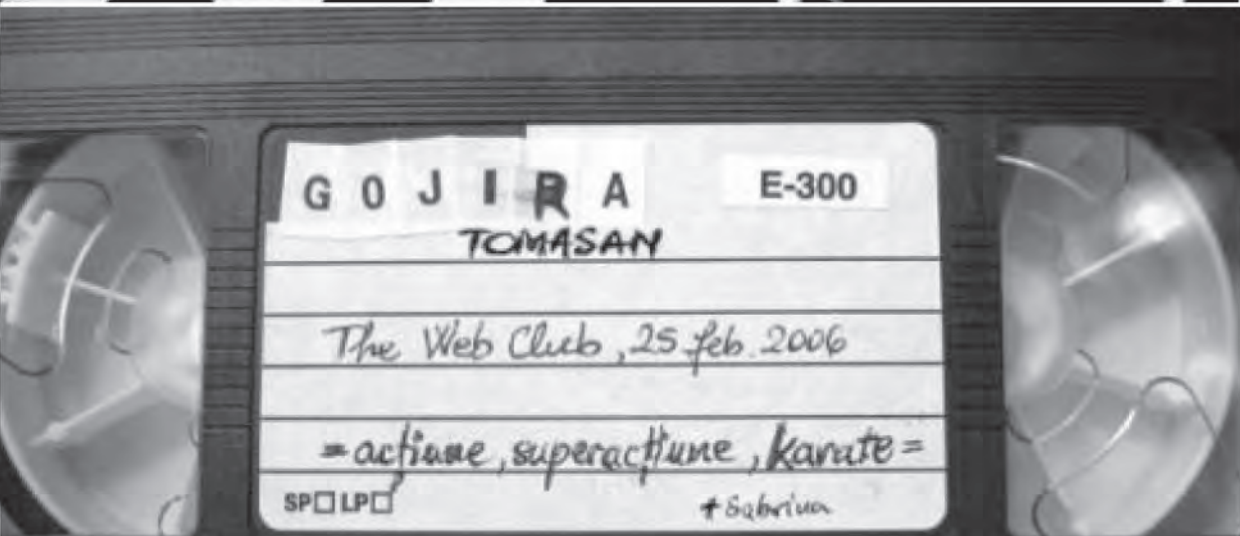 GOJIRA E-300
TOMASAN
The Web Club, 25 feb. 2006
= acțiune, superacțiune, karate =
SP LP
+ Sabrina